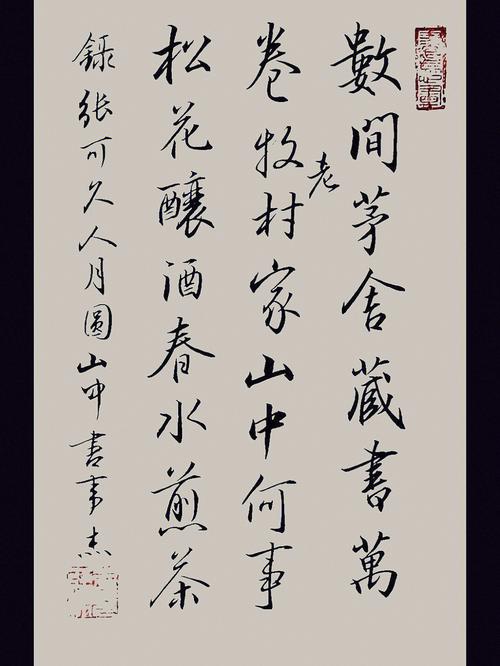 數間茅舍藏書萬
卷投老村家山中何事
松花釀酒春水煎茶
錄張可久人月圓山中書事杰